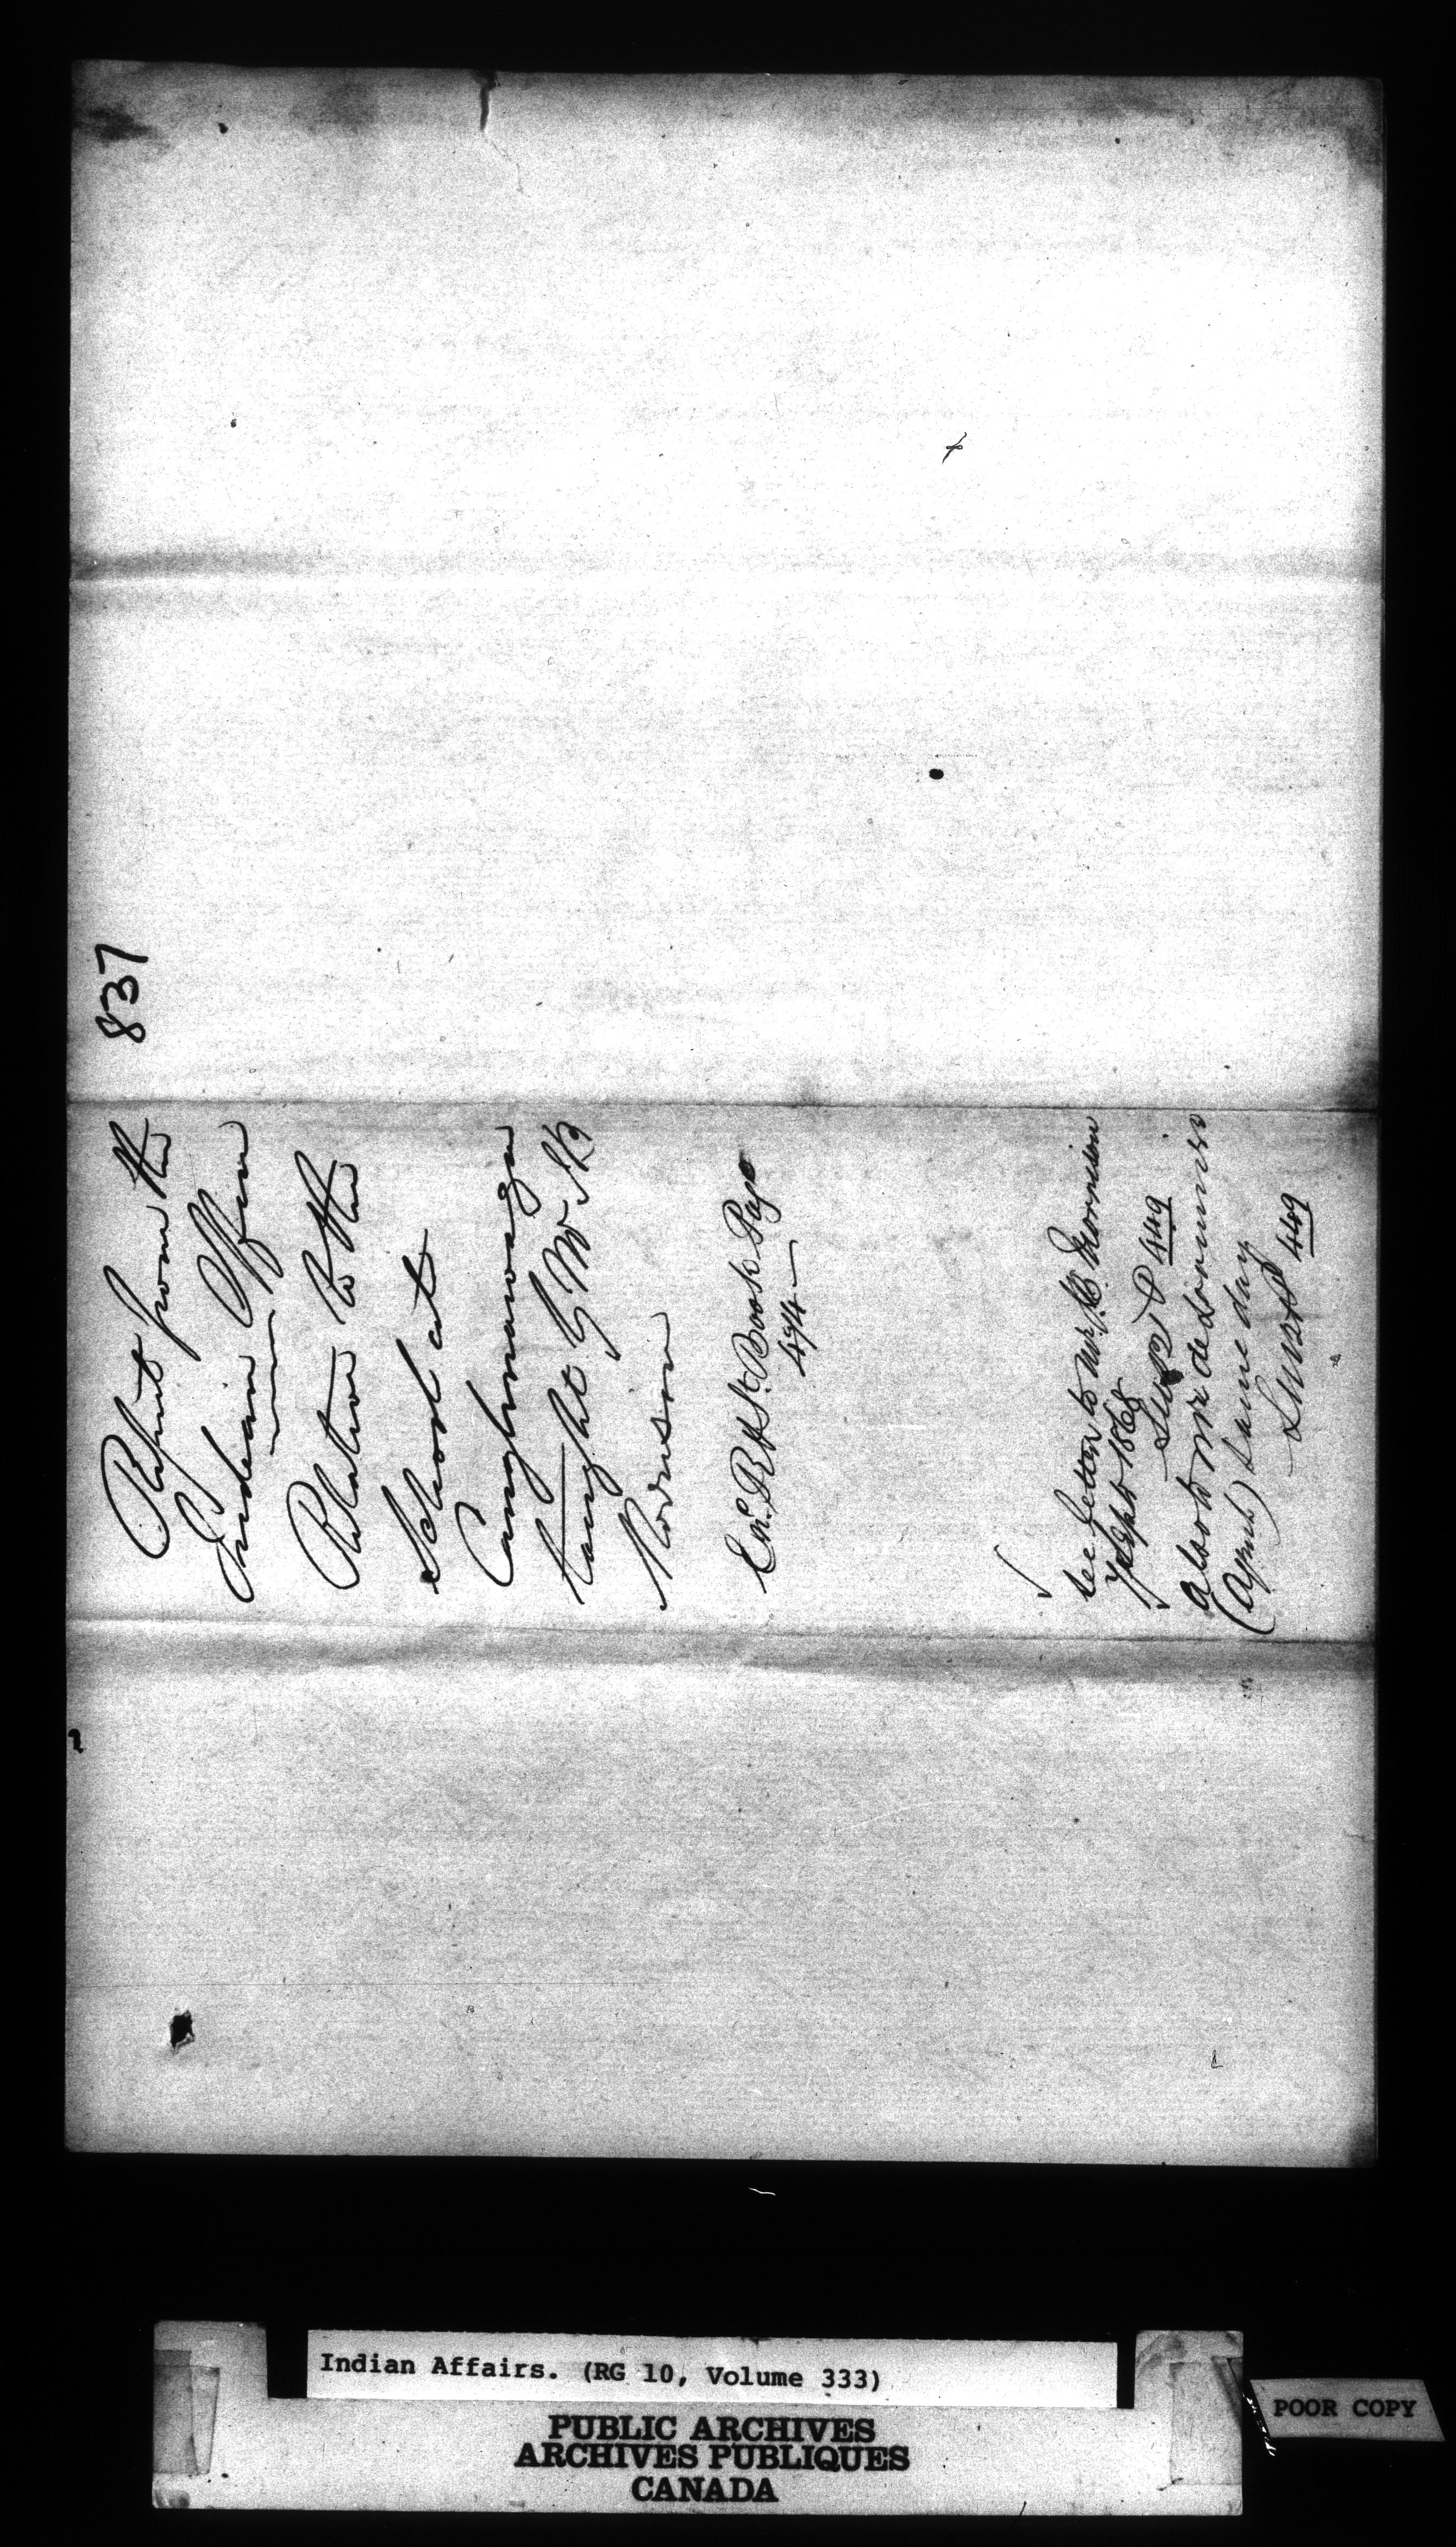 837
Report from the
Indian Office
Relative to the
School at
Caughnawaga
taught by Mr JK
Morrison
Ent. R H St. Book Page
494
see letter to Mr. JK. Morrison
7 Sept 1868
449
also to Mr de Lorimier
(Agent) same day
449
Indian Affairs. (RG 10, Volume 333)
PUBLIC ARCHIVES
ARCHIVES PUBLIQUES
CANADA
POOR COPY